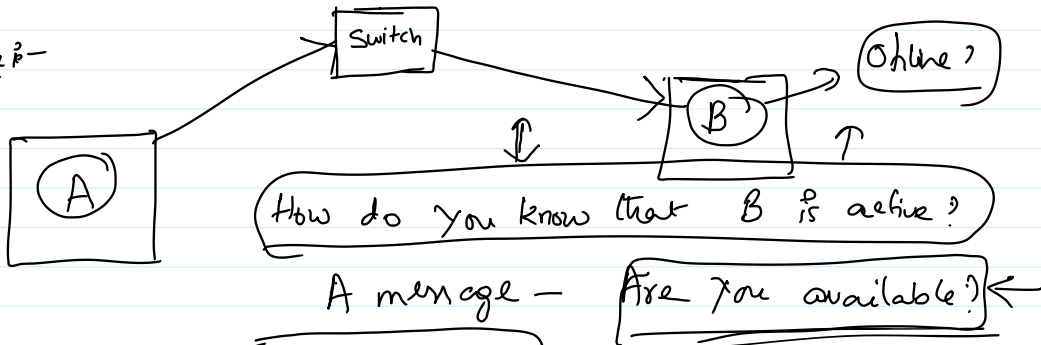 Switch
Online?
B
A
How do you know that B is active?
A message – Are you available?